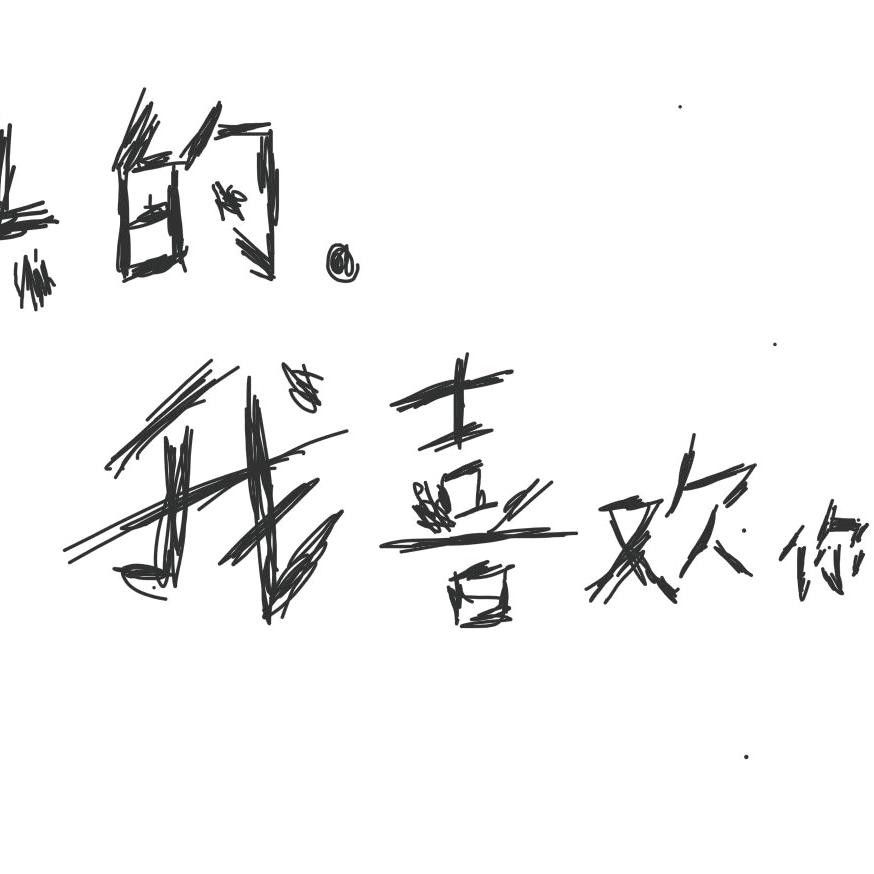 的。
我喜欢你